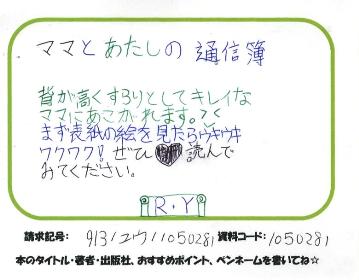 ママとあたしの通信簿
背が高くすらりとしてキレイな
ママにあこがれます。
まず表紙の絵を見たらウキウキ
ワクワク! ぜひ 読んで
みてください。
R・Y
請求記号: 913/ユウ/1050281 資料コード: 1050281
本のタイトル・著者・出版社、おすすめポイント、ペンネームを書いてね☆